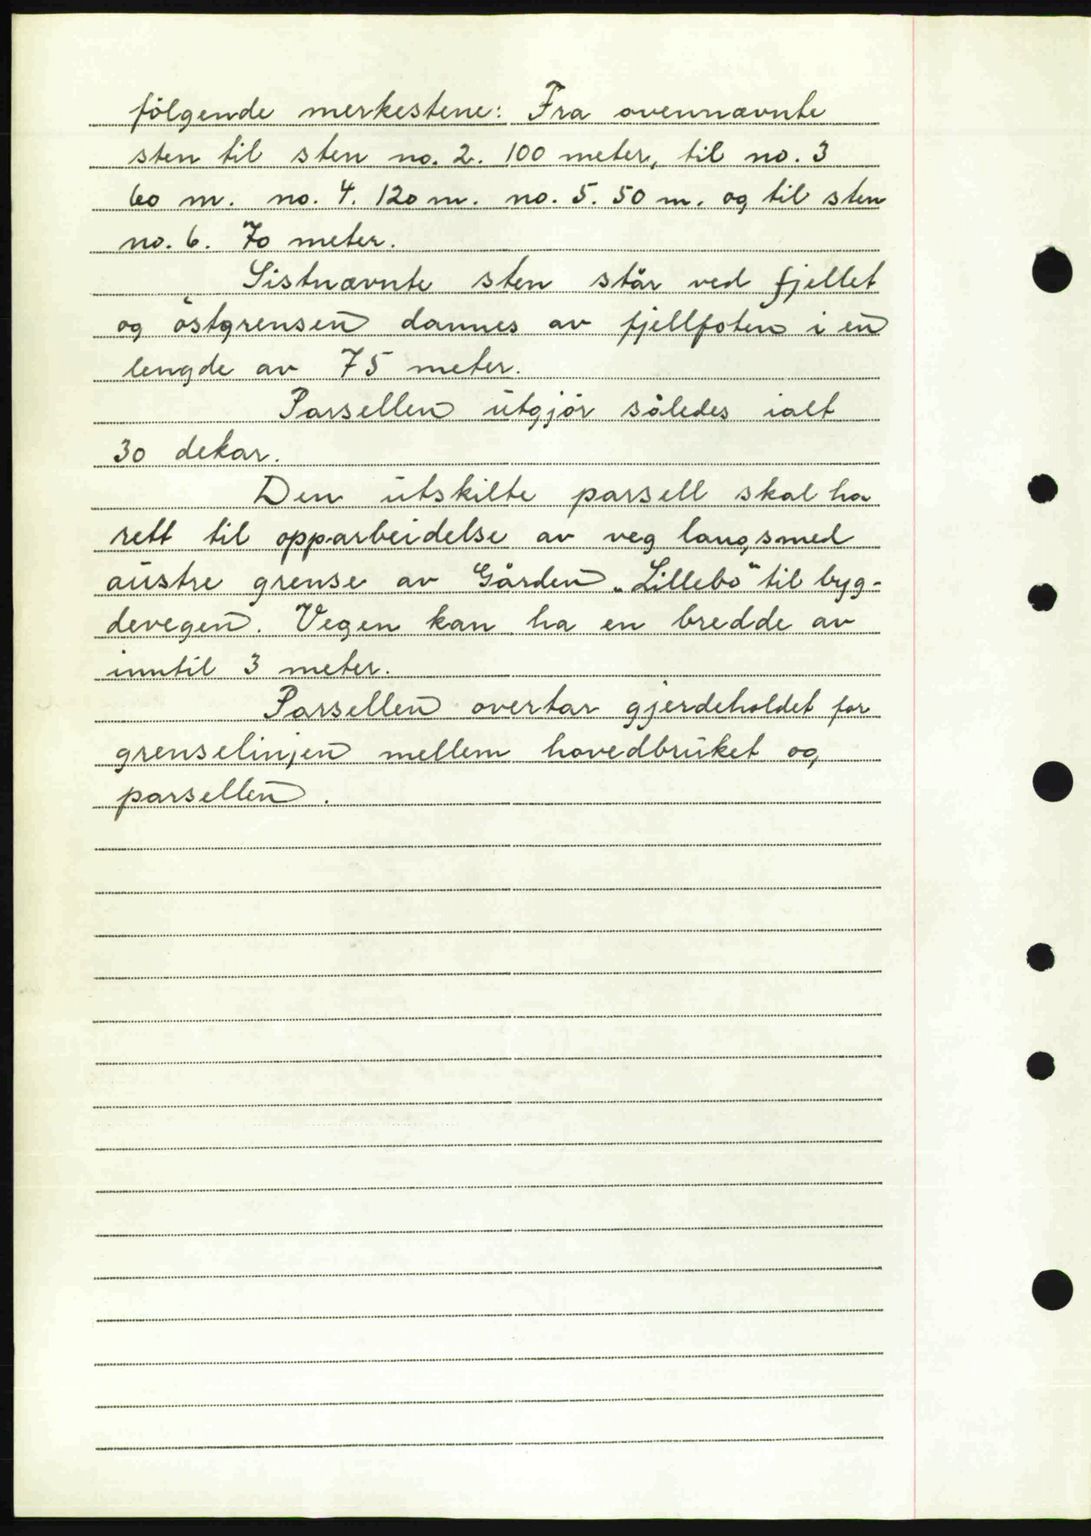 følgende merkestene: Fra ovennævnte
sten til sten no. 2. 100 meter, til no. 3
60 m. no. 4. 120 m. no. 5. 50 m. og til sten
no. 6. 70 meter.
Sistnævnte sten står ved fjellet
og östgrensen dannes av fjellfoten i en
lengde av 75 meter.
Parsellen utgjör således ialt
30 dekar.
Den utskilte parsell skal ha
rett til opparbeidelse av veg langsmed
austre grense av Gården „Lillebo“ til byg-
devegen. Vegen kan ha en bredde av
inntil 3 meter.
Parsellen overtar gjerdeholdet for
grenselinjen mellem hovedbruket og
parsellen.